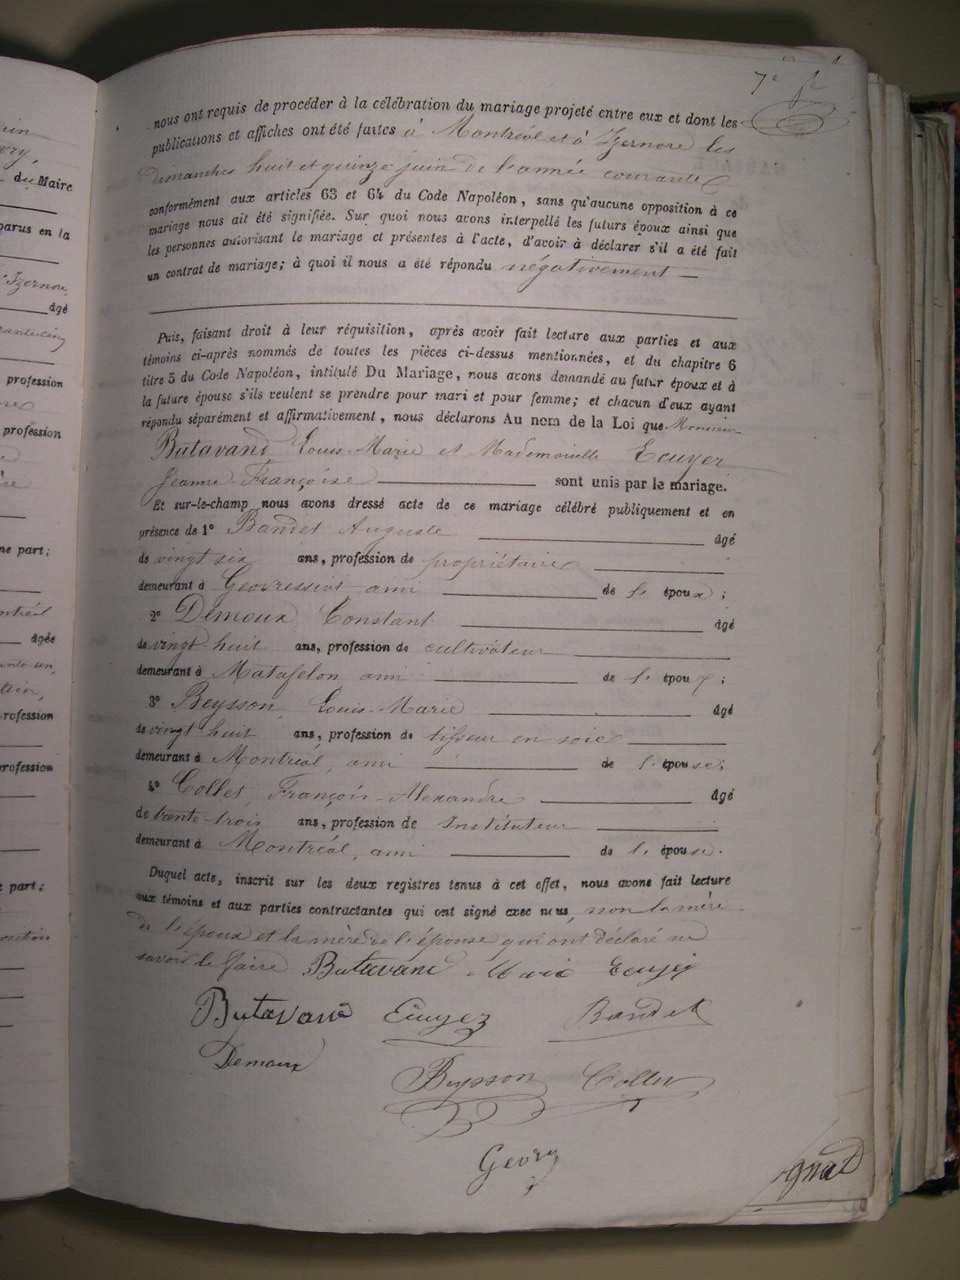 7e
nous ont requis de procéder à la célébration du mariage projeté entre eux et dont les
publications et affiches ont été faites à Montréal et à Izernore les
dimanches huit et quinze juin de l'année courante
conformément aux articles 63 et 64 du Code Napoléon, sans qu'aucune opposition à ce
mariage nous ait été signifiée. Sur quoi nous avons interpellé les futurs époux ainsi que
les personnes autorisant le mariage et présentes à l'acte, d'avoir à déclarer s'il a été fait
un contrat de mariage; à quoi il nous a été répondu négativement
Puis, faisant droit à leur réquisition, après avoir fait lecture aux parties et aux
témoins ci-après nommés de toutes les pièces ci-dessus mentionnées, et du chapitre 6
titre 5 du Code Napoléon, intitulé Du Mariage, nous avons demandé au futur époux et à
la future épouse s'ils veulent se prendre pour mari et pour femme; et chacun d'eux ayant
répondu séparément et affirmativement, nous déclarons Au nom de la Loi que Monsieur
Butavand Louis-Marie et Mademoiselle Ecuyer
Jeanne Françoise sont unis par le mariage.
Et sur-le-champ nous avons dressé acte de ce mariage célébré publiquement et en
présence de 1° Bandet Auguste âgé
de vingt six ans, profession de propriétaire
demeurant à Geovressiat ami de l'époux;
2° Demoux Constant âgé
de vingt huit ans, profession de cultivateur
demeurant à Matafelon ami de l'époux;
3° Beysson, Louis-Marie âgé
de vingt huit ans, profession de tisseur en soie
demeurant à Montréal, ami de l'épouse;
4° Collet, François-Alexandre âgé
de trente-trois ans, profession de Instituteur
demeurant à Montréal, ami de l'épouse.
Duquel acte, inscrit sur les deux registres tenus à cet effet, nous avons fait lecture
aux témoins et aux parties contractantes qui ont signé avec nous, non la mère
de l'époux et la mère de l'épouse qui ont déclaré ne
savoir le faire Butavand Ecuyer
Butavand Ecuyer Bandet
Demoux
Beysson Collet
Gevry
du Maire
parus en la
Izernore,
âgé
profession
profession
ne part;
âgée
profession
profession
e part;